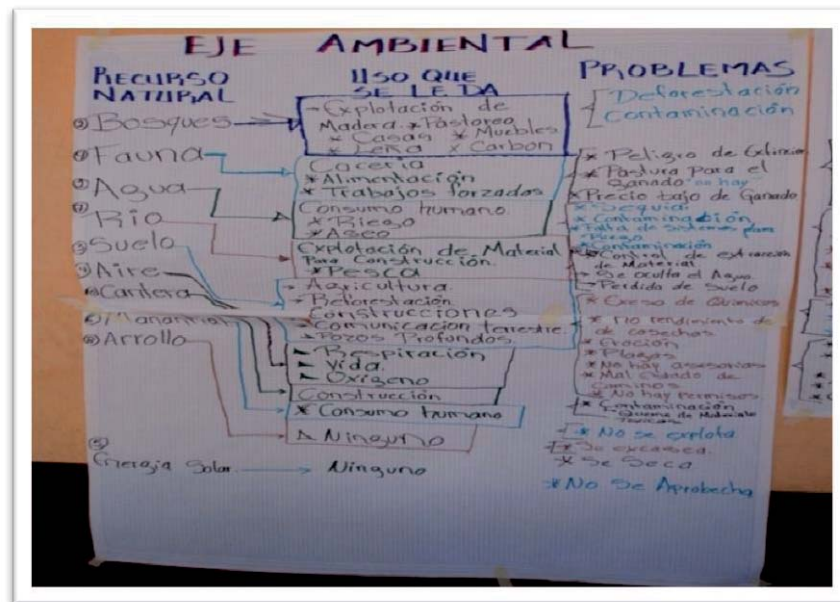 EJE AMBIENTAL
RECURSO
NATURAL
Bosques
Fauna
Agua
Rio
Suelo
Aire
Cantera
Manantial
Arrollo
Energia Solar
USO QUE
SE LE DA
- Explotación de
Madera * Pastoreo
* Casas * Muebles
* Leña x Carbon
Caceria
* Alimentación
* Trabajos forzados
Consumo humano
* Riego
* Aseo
Explotación de Material
Para Construcción.
* Pesca
- Agricultura.
- Reforestación
Construcciones
* Comunicacion terrestre.
* Pozos Profundos.
Respiración
Vida.
Oxigeno
Construcción
* Consumo humano
Ninguno
Ninguno
PROBLEMAS
Deforestación
Contaminación
* Peligro de
* Pastura para el
ganado no hay
* Precio bajo de Ganado
* Sequia
* Contaminación
* Falta de Sistemas para
Riego
* Contaminación
* Control de extracción
de Material
* Se oculta el Agua
- Perdida de Suelo
* Exeso de Quimicos
* No rendimiento de
de cosechas
* Eroción
* Plagas
* No hay asesorias
* Mal Estado de
Caminos
* No hay Permisos
* Contaminación
Quema de Materiales
Toxicos
* No se explota
* Se excasea.
* Se Seca
* No Se Aprobecha